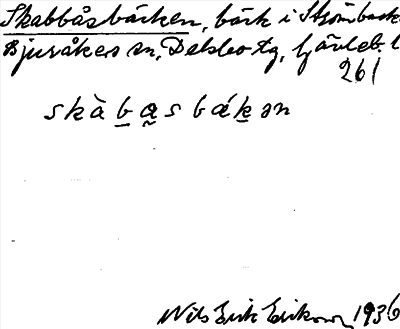 Skabbåsbäcken, bäck i Strömbacka
Bjuråkers sn, Delsbo tg, Gävleb. l
261
skàbasbákən
Nils Erik Eriksson 1936